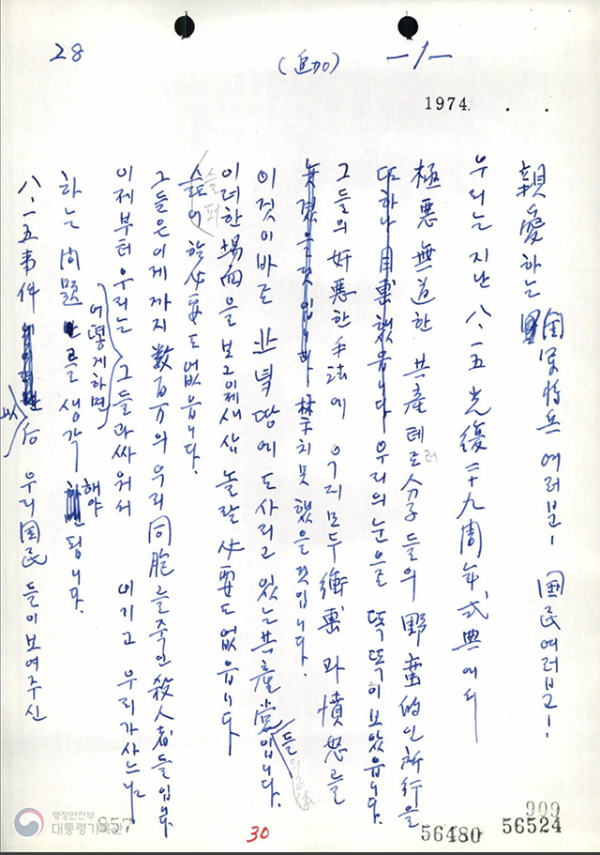 28
(追加)
—1—
1974 . .
親愛하는 國軍將兵 여러분! 國民여러분!
우리는 지난 八.一五 光復二十九周年式典에서
極悪無道한 共產테로分子들의 野蛮的인所行을
러
우리의눈으로 똑똑히보았읍니다.
그들의 奸悪한手法에 우리모두 衝擊과 憤怒를
禁치못했을것입니다.
이것이바로 北녘땅에도사리고 있는共產党입니다.
들
이러한 場面을 보고이제새삼 놀랄必要도없읍니다
슬퍼
할必要도없읍니다.
그들은이제까지 數百万의우리同胞를죽인殺人者들입니다
이제부터우리는 그들과싸워서 이기고 우리가사느냐
어떻게하면
하는 問題를 생각해야 됩니다.
八.一五事件 以后 우리國民들이보여주신
행정안전부
대통령기록관
857
30
56480
909
56524